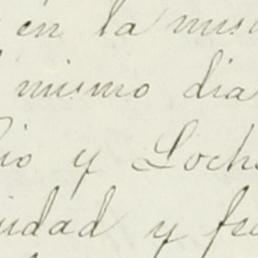 en la mis
mismo dia
io y Loch
udad y fe